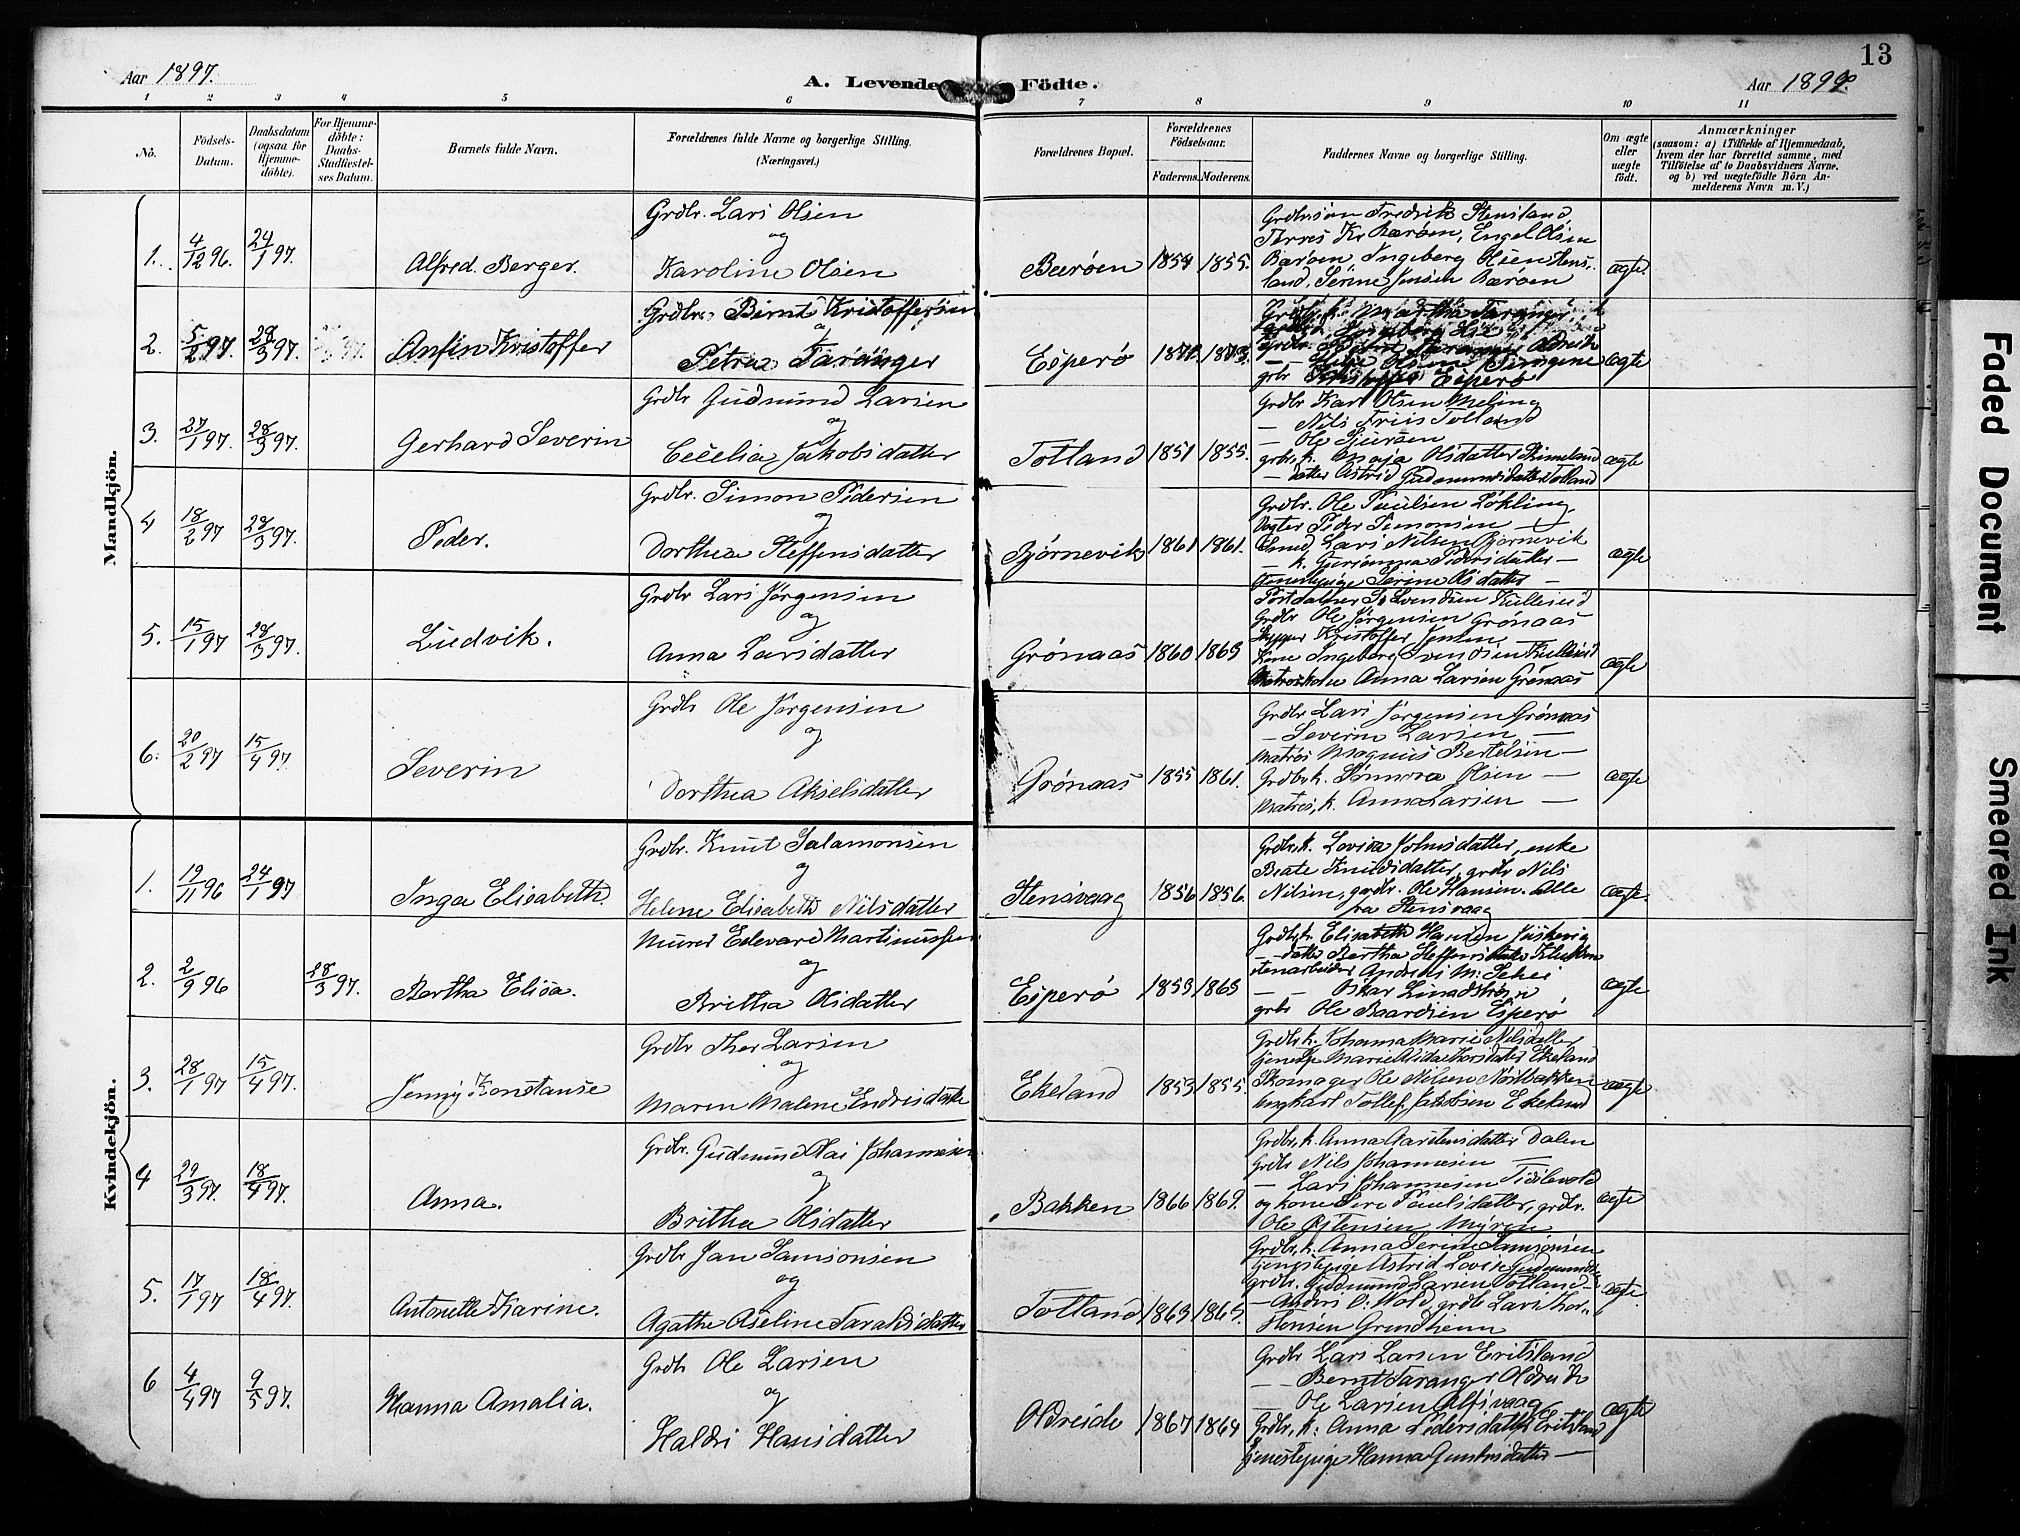 13
Aar 1897.
A. Levende Födte.
Aar 1897.
1 2 3 4 5 6 7 8 9 10 11
No.
Födsels-Datum.
Daabsdatum (ogsaa for Hjemmedöbte).
For Hjemmedöbte: Daabs-Stadfæstelses Datum.
Barnets fulde Navn.
Forældrenes fulde Navne og borgerlige Stilling. (Næringsvei.)
Forældrenes Bopæl.
Forældrenes Födselsaar.
Faderens. Moderens.
Faddernes Navne og borgerlige Stilling.
Om ægte eller uægte födt.
Anmærkninger
(saasom: a) i Tilfælde af Hjemmedaab, hvem der har forrettet samme, med Tilföielse af to Daabsvidners Navne, og b) ved uægtefödte Börn Anmelderens Navn m. V.)
Mandkjön.
1. 4/12 96. 24/1 97. Alfred Berger.
Grdbr. Lars Olsen
og
Karoline Olsen
Bærøen 1854 1855. ægte
Grdbrsøn Fredrik Stensland,
Torres Kr. Bærøen, Engel Olsen
Bærøen, Ingeborg Olsen Stens-
land, Serine Jensen Bærøen
2. 5/2 97. 28/3 97. Anfin Kristoffer
Grdbr. Bernt Kristoffersen
og
Petrea Taranger
Esperø ægte
Kristoffer Esperø
3. 27/1 97. 28/3 97. Gerhard Severin
Grdbr Gudmund Larsen
og
Cecelia Jakobsdatter
Totland 1851 1855. ægte
Grdbr Karl Olsen Meling
— Nils Friis Totland
— Ole
grbr. k. Olsdatter
— datter Astrid Gudmundsdatter Totland
4 18/2 97 28/3 97. Peder.
Grdbr. Simon Pedersen
og
Dorthea Steffensdatter
Bjørnevik 1861 1861. ægte
Grdbr. Ole Paulsen Løkling,
Peder Simonsen —
Smed Lars Nilsen Bjørnevik
— k. Pedersdatter —
Tjenestepige Serine Olsdatter —
5. 15/1 97 28/3 97. Ludvik.
Grdbr Lars Jørgensen
og
Anna Larsdatter
Grønaas 1860 1863 ægte
Svendsen Kulleseid
Grdbr Ole Jørgensen Grønaas
Skipper Kristoffer Jensen
Kone Ingeborg Svendsen Kulleseid
Matroskone Anna Larsen Grønaas
6. 20/2 97 15/4 97. Severin
Grdbr Ole Jørgensen
og
Dorthea Akselsdatter
Grønaas 1855 1861. ægte
Grdbr Lars Jørgensen Grønaas
— Severin Larsen —
Matros Magnus Bertelsen —
Grdbr. k. Olsen —
Matros. k. Anna Larsen —
Kvindekjön.
1. 19/11 96 24/1 97 Inga Elisabeth.
Grdbr. Knut Salamonsen
og
Helene Elisabeth Nilsdatter
Stensvaag 1856 1856. ægte.
Grdbr. k. Lovisa Johnsdatter, enke
Beate Knudsdatter, grdbr Nils
Nilsen, grdbr. Ole Hansen. Alle
fra Stensvaag
2. 2/9 96 28/3 97. Bertha Elisa.
Murer Edevard Martinussen
og
Britha Olsdatter
Esperø 1853 1863 ægte
Grdbr. k. Elisabeth Hansen
— datter Bertha Steffensdatter
Stenarbeider Andreas M.
— — Oskar Lundstrøm
grbr Ole Baardsen Esperø
3. 28/1 97 15/4 97. Jenny Konstanse
Grdbr Thor Larsen
og
Maren Malene Endresdatter
Ekeland 1853 1855. ægte
Grdbr. k. Johanna Marie Nilsdatter
Ekeland
Skomager Ole Nilsen Nordbakken
ungkarl Tollef Jakobsen Ekeland
4 29/3 97. 18/4 97. Anna.
Grdbr. Gudmund Olai Johannesen
og
Britha Olsdatter
Bakken 1866 1869. ægte
Grdbr. k. Anna Aarstensdatter Dalen
Grdbr Nils Johannesen —
— Lars Johannesen
og kone Paulsdatter, grdbr.
Ole Østensen Myren
5. 17/1 97 18/4 97. Antonette Karine.
Grdbr Jan Samsonsen
og
Agathe Oseline Taraldsdatter
Totland 1863 1865. ægte.
Grdbr. k. Anna Serine Samsonsen
Tjenestepige Astrid Lovise Gudmundsd.
grdbr. Gudmund Larsen Totland —
— Anders O. Wold, grdbr Lars Thor-
stensen Grindheim
6 4/4 97 9/5 97. Hanna Amalia.
Grdbr Ole Larsen
og
Haldri Hansdatter
Oldreide 1867 1864 ægte
Grdbr Lars Larsen Eritsland
— — Bernt Taranger Oldreide
— Ole Larsen Alfsvaag
Grdbr. k. Anna Pedersdatter Eritsland
Tjenestepige Hanna —
Faded Document
Smeared Ink